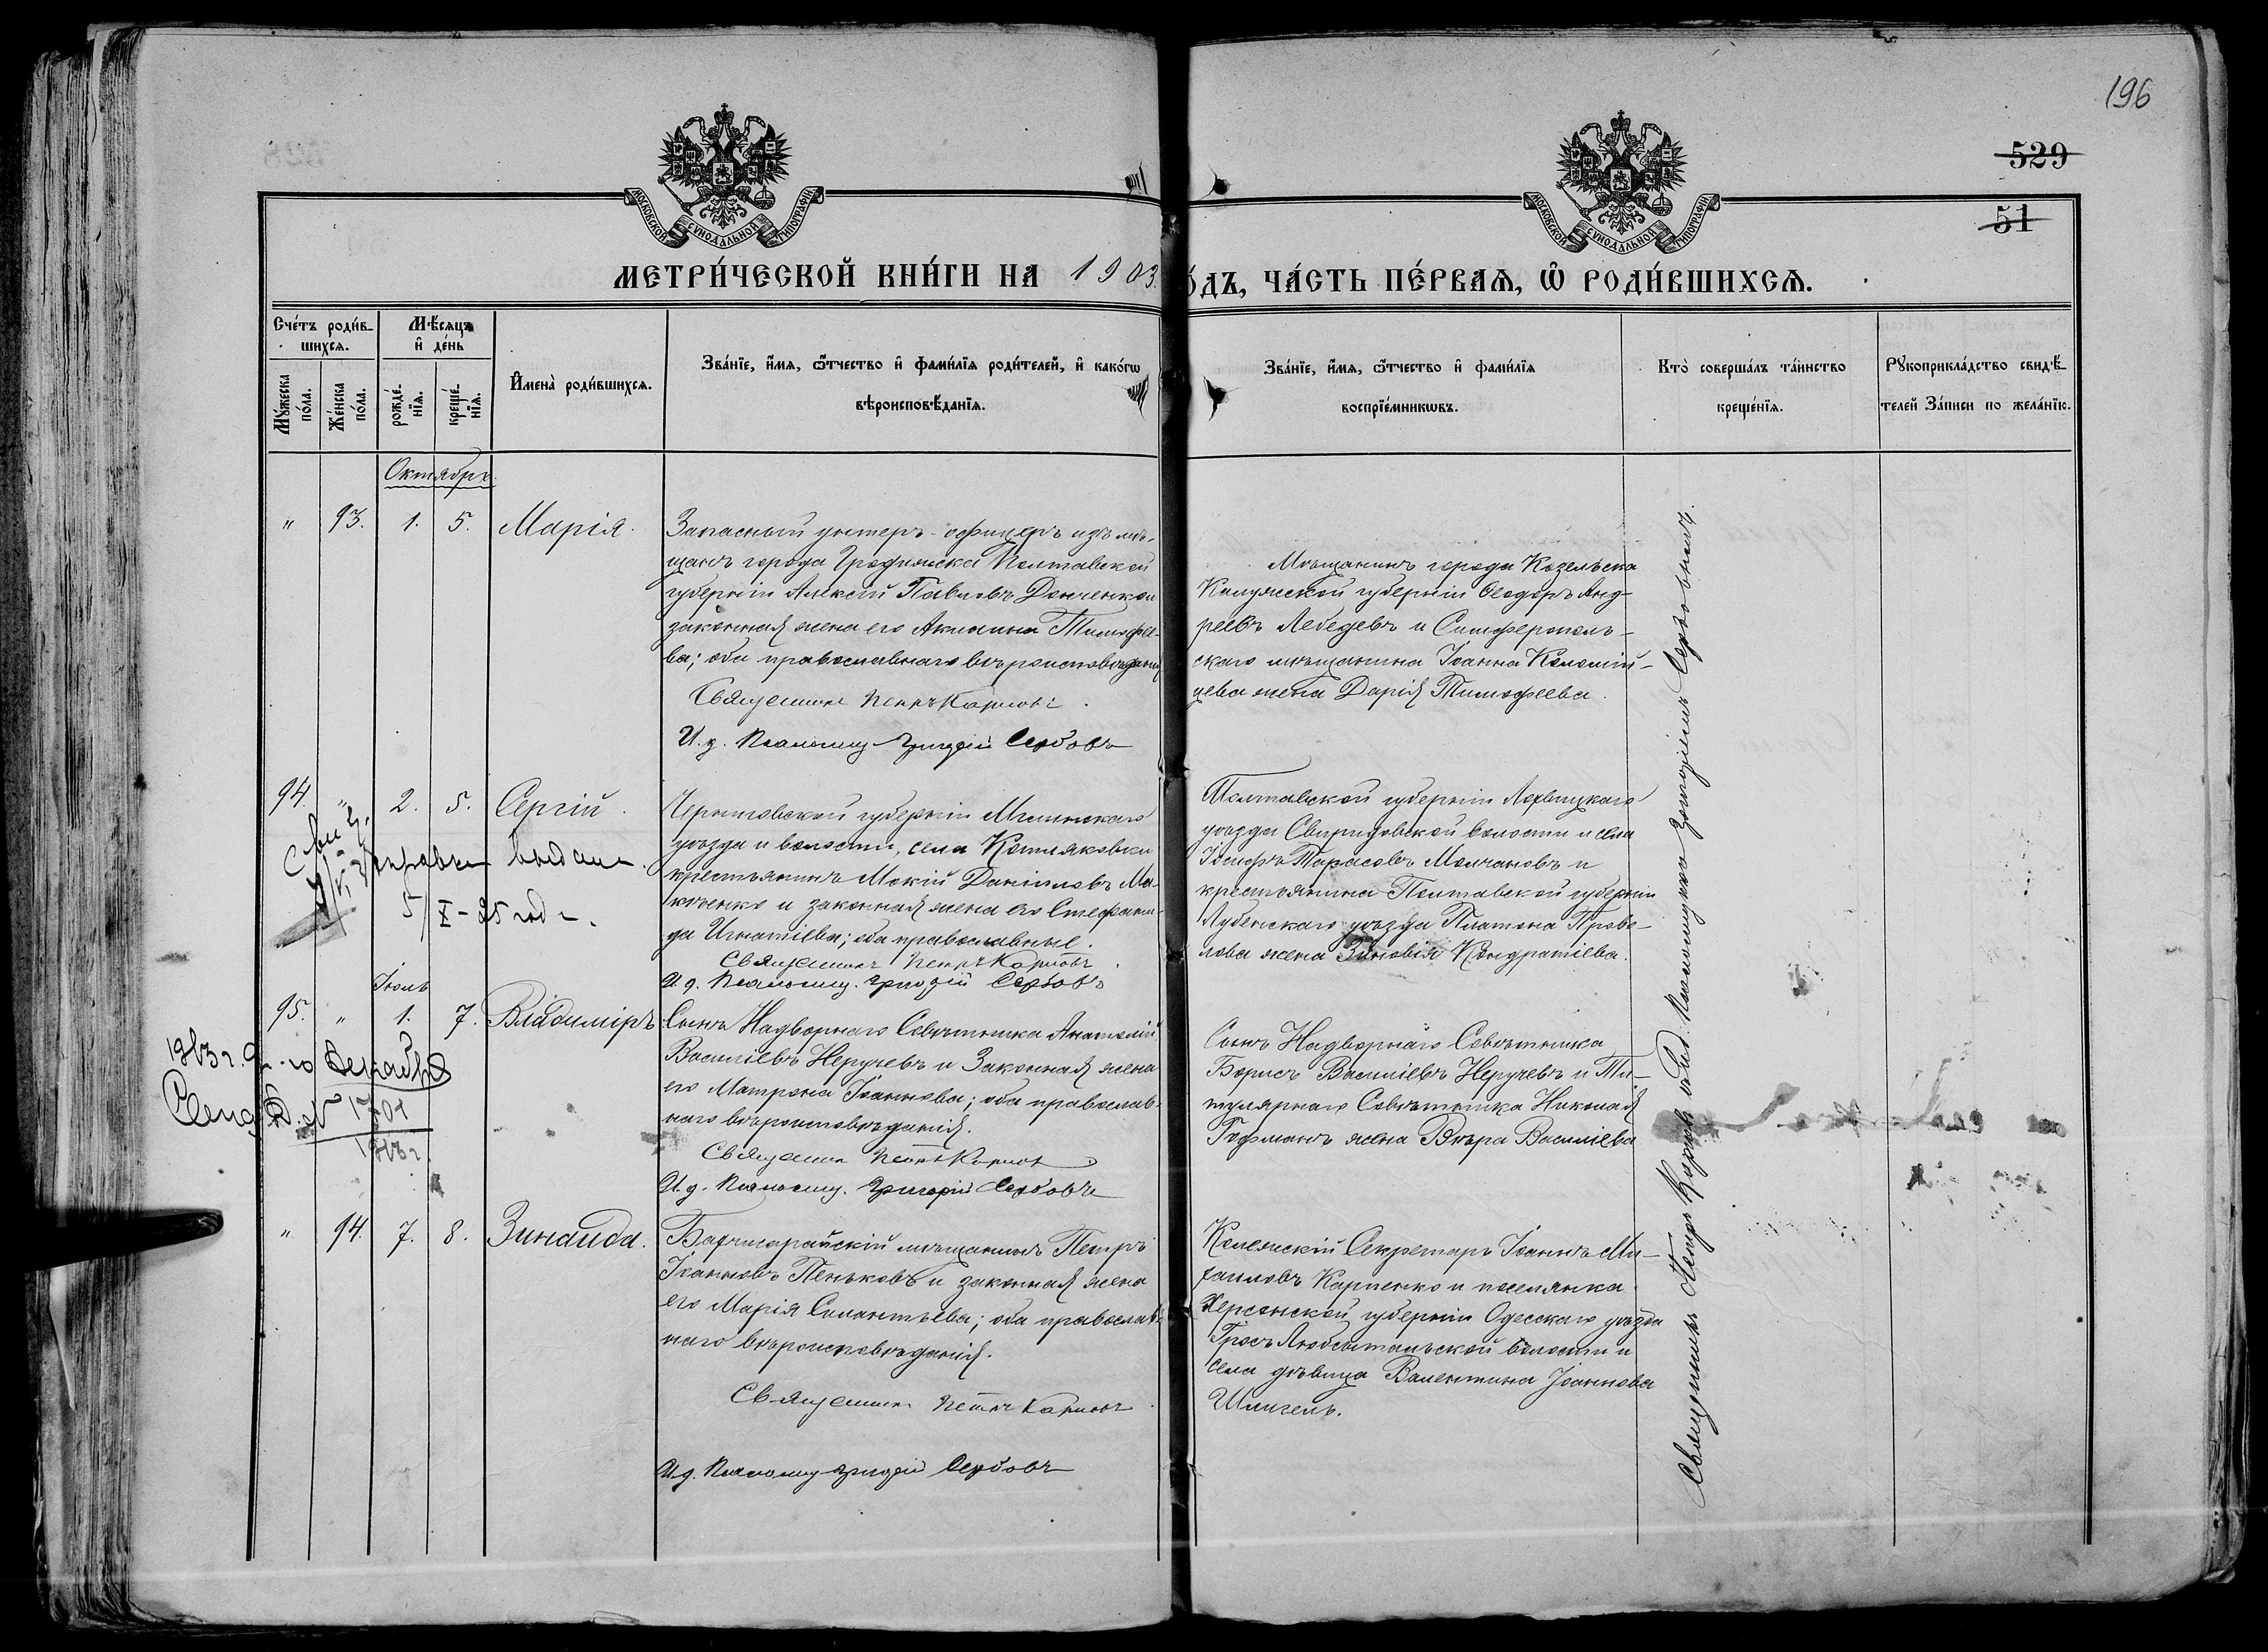 196
529
51
МОСКОВСКОЙ СѴНОДАЛЬНОЙ ТИПОГРАФІИ
МОСКОВСКОЙ СѴНОДАЛЬНОЙ ТИПОГРАФІИ
МЕТРИ́ЧЕСКОЙ КНИ́ГИ НА 1903
О́ДЪ, ЧА́СТЬ ПЕ́РВАѦ, Ѡ РОДИ́ВШИХСѦ.
Сче́тъ роди́в-
шихсѧ.
Мꙋ́жеска
по́ла.
Же́нска
по́ла.
Мѣ́сяцъ
и҆ де́нь
рожде́-
нїѧ.
креще́-
нїѧ.
И҆мена̀ роди́вшихсѧ.
Зва́нїе, и҆́мѧ, ѻ҆́тчество и҆ фами́лїѧ роди́телей, и҆ како́гѡ
вѣроисповѣ́данїѧ.
Зва́нїе, и҆́мѧ, ѻ҆́тчество и҆ фами́лїѧ
воспрїе́мникѡвъ.
Кто̀ соверша́лъ та́инство
креще́нїѧ.
Рꙋкоприкла́дство свидѣ́-
телей за́писи по жела́нїю.
Октябрь.
" 93. 1. 5. Марія.
Запасный унтеръ-офицеръ изъ мѣ-
щанъ города Градижска Полтавской
губерніи Алексій Павловъ Донченко и
законная жена его Акилина Тимофее-
ва; оба православнаго вѣроисповѣданія
Священникъ Петръ Карповъ.
И. д. Псаломщ. Григорій Сербовъ
Мѣщанинъ города Козельска
Калужской губерніи Ѳеодоръ Анд-
реевъ Лебедевъ и Симферополь-
скаго мѣщанина Іоанна Коломій-
цева жена Дарія Тимофеева.
94. " 2. 5. Сергій.
Черниговской губерніи Мглинскаго
уѣзда и волости, села Котляковки
крестьянинъ Мокій Даніиловъ Ма-
и законная жена его Стефани-
да Игнатіева; оба православные.
Священникъ Петръ Карповъ.
И. д. Псаломщ. Григорій Сербовъ
Полтавской губерніи Лохвицкаго
уѣзда Свиридовской волости и села
Іосифъ Тарасовъ Молчановъ и
крестьянина Полтавской губерніи
Лубенскаго уѣзда Платона Прово-
лова жена Зиновія Кондратіева.
справка выдана.
5/X-25 года.
Іюль
95. " 1. 7. Владиміръ
Сынъ Надворнаго Совѣтника Анатолій
Василіевъ Неручевъ и Законная жена
его Матрона Іоаннова; оба православ-
наго вѣроисповѣданія.
Священникъ Петръ Карповъ
И. д. Псаломщ. Григорій Сербовъ
Сынъ Надворнаго Совѣтника
Борисъ Василіевъ Неручевъ и Ти-
тулярнаго Совѣтника Николая
Гофманъ жена Вѣра Василіева
Декабря
" 94. 7. 8. Зинаида.
Бахчисарайскій мѣщанинъ Петръ
Іоанновъ Пеньковъ и законная жена
его Марія Силантьева; оба православ-
наго вѣроисповѣданія.
Священникъ Петръ Карповъ.
И. д. Псаломщ. Григорій Сербовъ
Коллежскій Секретарь Іоаннъ Ми-
хаиловъ Карпенко и поселянка
Херсонской губерніи Одесскаго уѣзда
Гросъ Либентальской волости и
села дѣвица Валентина Іоаннова
Шлигель.
Священникъ Петръ Карповъ съ и. д. Псаломщика Григоріемъ Сербовымъ.